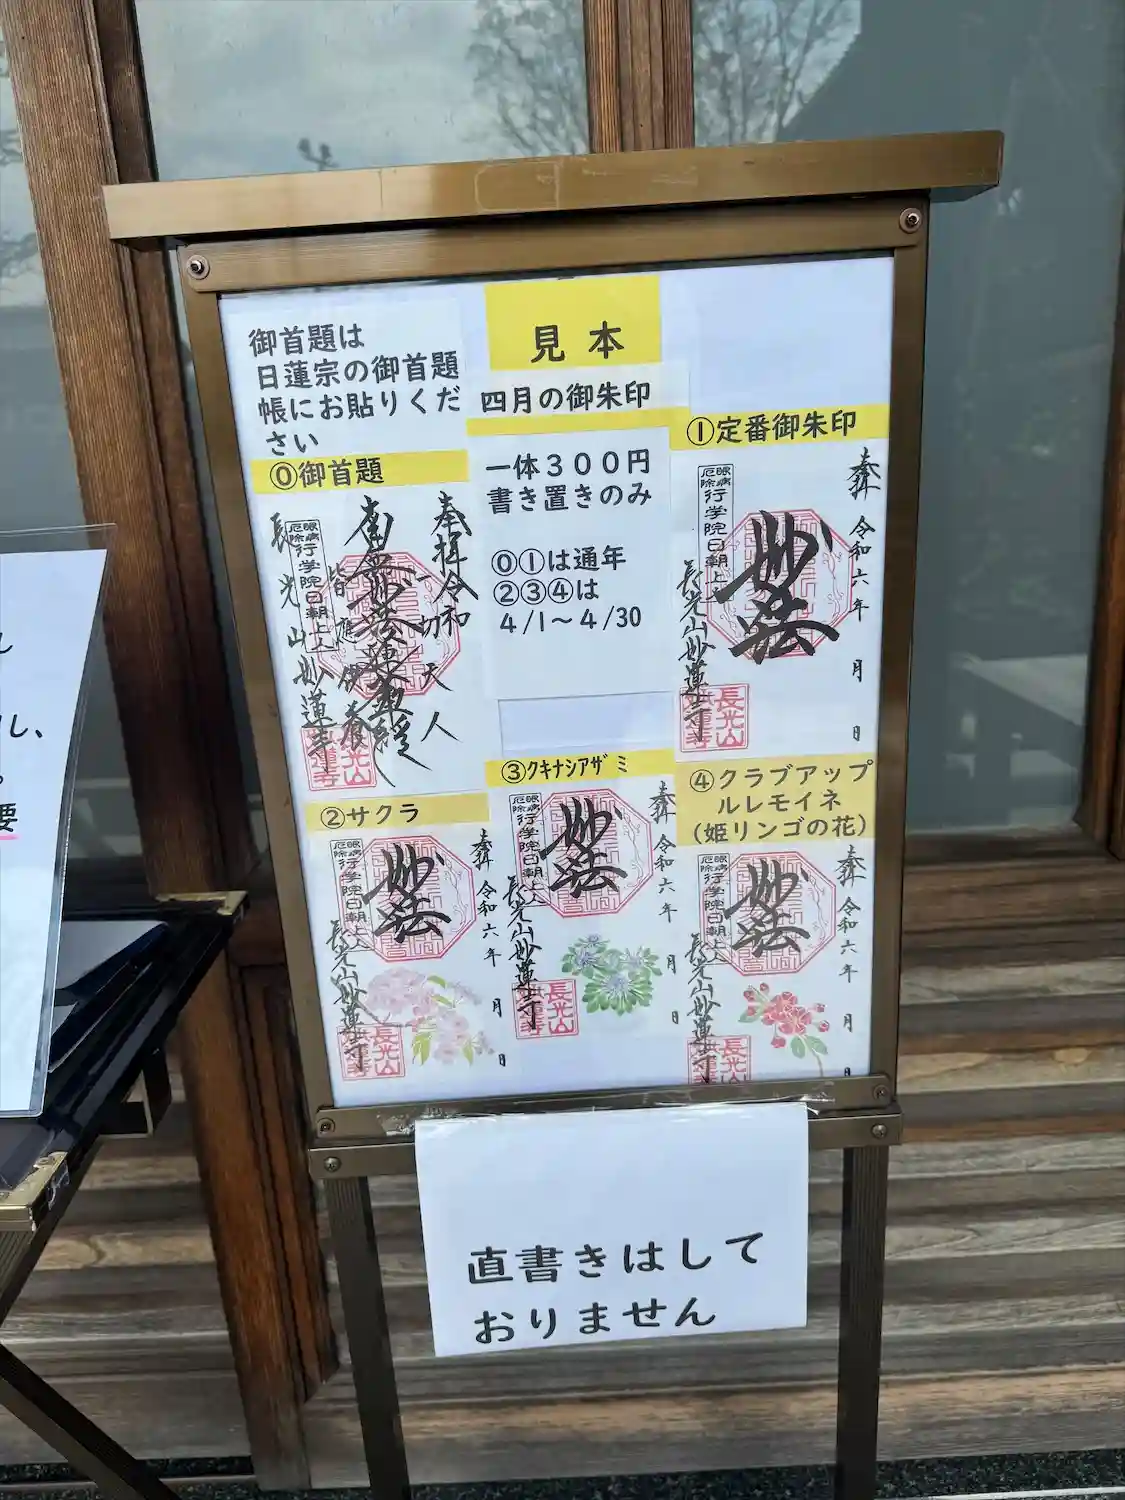 御首題は
日蓮宗の御首題
帳にお貼りくだ
さい
⓪御首題
奉拝 令和
南無妙法蓮華経
一切天人
皆應供養
眼病
厄除
行学院日朝上人
長光山妙蓮寺
長光山
妙蓮寺
見本
四月の御朱印
一体300円
書き置きのみ
⓪①は通年
②③④は
4/1〜4/30
①定番御朱印
奉拝 令和六年 月 日
妙法
眼病
厄除
行学院日朝上人
長光山妙蓮寺
長光山
妙蓮寺
②サクラ
奉拝 令和六年 月 日
妙法
眼病
厄除
行学院日朝上人
長光山妙蓮寺
長光山
妙蓮寺
③クキナシアザミ
奉拝 令和六年 月 日
妙法
眼病
厄除
行学院日朝上人
長光山妙蓮寺
長光山
妙蓮寺
④クラブアップ
ルレモイネ
(姫リンゴの花)
奉拝 令和六年 月 日
妙法
眼病
厄除
行学院日朝上人
長光山妙蓮寺
長光山
妙蓮寺
直書きはして
おりません
し、
要